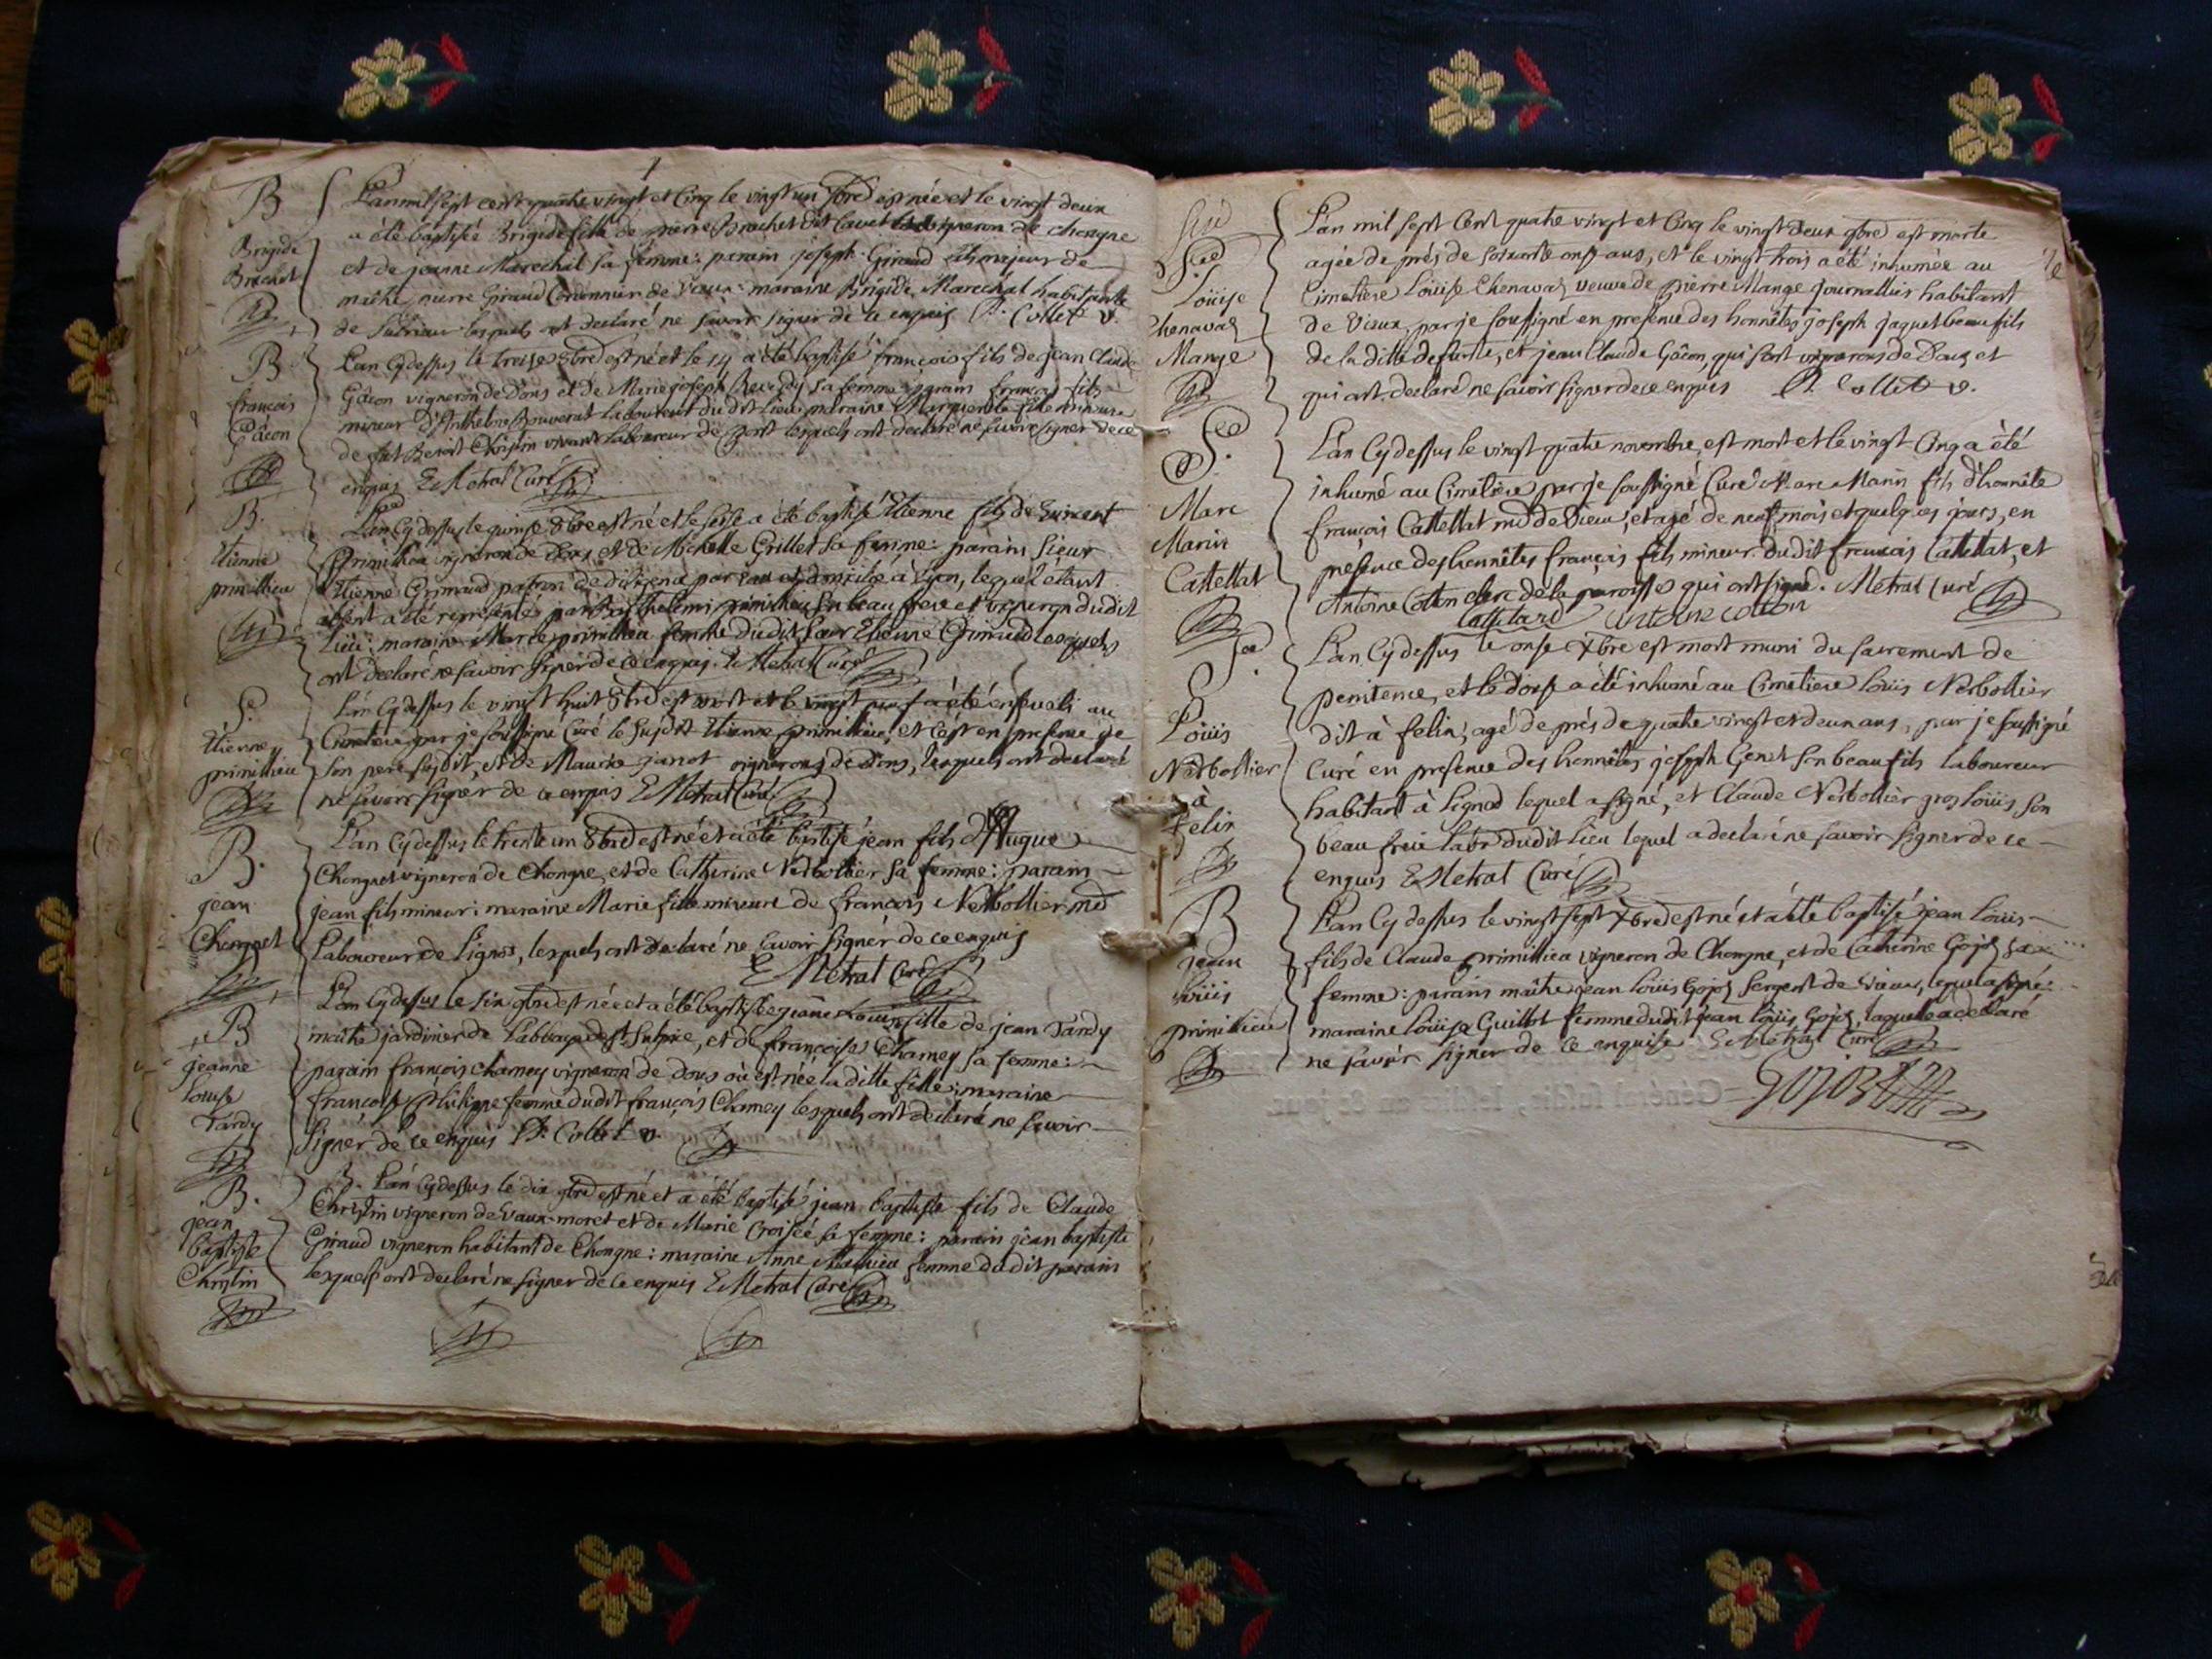 B
Brigide
Brachet
L'an mil sept cent quatre vingt et Cinq le vingt un est née et le vingt deux
a été baptisée Brigide fille de pierre Brachet dit vigneron de chongne
et de jeanne Marechal sa femme: parain joseph Giraud fils majeur de
maître pierre Giraud Cordonnier de Vieux: maraine Brigide Marechal habitante
de lesquels ont declaré ne savoir signer de ce enquis Collet v.
B
françois
Gâcon
L'an Cy dessus le treise 8bre est né et le 14 a été baptisé françois fils de jean Claude
Gâcon vigneron de Dons et de Marie joseph sa femme parain françois fils
mineur d'Anthelme laboureur du dit Lieu: maraine Marguerite fille mineure
de fut Benoit Christin vivant laboureur de lesquels ont declaré ne savoir signer de ce
enquis E Metral Curé
B.
Etienne
primillieu
L'an Cy dessus le quinse 8bre est né et le seise a été baptisé Etienne fils de Vincent
primillieu vigneron de Dons et de Michelle Grillet sa femme: parain sieur
Etienne Grimaud patron de diligence par eau et domicilié à Lyon, lequel étant
absent a été representé par Barthelemi primillieu son beau frere et vigneron du dit
Lieu: maraine Marie primillieu femme du dit sieur Etienne Grimaud lesquels
ont declaré ne savoir signer de ce enquis. E Metral Curé
S.
Etienne
primillieu
L'an Cy dessus le vingt huit 8bre est mort et le vingt neuf a été enseveli au
Cimetiere par je soussigné Curé le susdit Etienne primillieu, et c'est en presence de
son pere susdit, et de Maurice janot vignerons de Dons, lesquels ont declaré
ne savoir signer de ce enquis E Metral Curé
B.
jean
Chongnet
L'an Cy dessus le trente un 8bre est né et a été baptisé jean fils d'Hugue
Chongnet vigneron de Chongne, et de Catherine Nerbollier sa femme: parain
jean fils mineur: maraine Marie fille mineure de françois Nerbollier md
Laboureur de Lignod, lesquels ont declaré ne savoir signer de ce enquis
E Metral Curé
B
jeanne
Louise
Tardy
L'an Cy dessus le six 9bre est née et a été baptisée jeanne Louise fille de jean Tardy
maître jardinier de l'abbaye de St. Sulpice, et de françoise Chamey sa femme:
parain françois Chamey vigneron de Dons où est née la ditte fille: maraine
françoise Philippe femme du dit françois Chamey lesquels ont declaré ne savoir
signer de ce enquis Collet v.
B.
jean
baptiste
Christin
B. L'an Cy dessus le dix 9bre est né et a été baptisé jean baptiste fils de Claude
Christin vigneron de Vaux-moret et de Marie Croisée sa femme: parain jean baptiste
Giraud vigneron habitant de Chongne: maraine Anne Mathieu femme du dit parain
lesquels ont declaré ne signer de ce enquis E Metral Curé
Sre
Loüise
Chenaval
Mange
L'an mil sept Cent quatre vingt et Cinq le vingt Deux 9bre est morte
agée de près de soixante onse ans, et le vingt trois a été inhumée au
Cimetiere Loüise Chenaval veuve de pierre Mange journallier habitant
de Vieux, par je soussigné en presence des honnêtes joseph jaquet beau fils
de la ditte defunte, et jean Claude Gâcon, qui sont vignerons de Dons, et
qui ont declaré ne savoir signer de ce enquis Collet v.
Sre
Marc
Marin
Cattellat
L'an Cy dessus le vingt quatre novembre est mort et le vingt Cinq a été
inhumé au Cimetiere par je soussigné Curé Marc Marin fils d'honnête
françois Cattellat md de Vieux, et agé de neuf mois et quelques jours, en
presence des honnêtes françois fils mineur du dit françois Cattellat, et
Antoine Cottin clerc de la paroisse qui ont signé. Metral Curé
Cattelard Antoine cottin
Sre
Loüis
Nerbollier
à
felix
L'an Cy dessus le onse Xbre est mort muni du sacrement de
penitence, et le douse a été inhumé au Cimetiere Loüis Nerbollier
dit à felix, agé de près de quatre vingt et deux ans, par je sussigné
Curé en presence des honnêtes joseph Genet son beau fils laboureur
habitant à Lignod lequel a signé, et Claude Nerbollier gros Loüis son
beau frere labr. du dit lieu lequel a declaré ne savoir signer de ce
enquis E Metral Curé
B
Jean
Loüis
primillieu
L'an Cy dessus le vingt sept Xbre est né et a été baptisé jean Loüis
fils de Claude primillieu vigneron de Chongne, et de Catherine Gojoz sa
femme: parain maître jean Loüis Gojoz sergent de Vieux, lequel a signé:
maraine Loüise Guillot femme du dit jean Loüis Gojoz, laquelle a declaré
ne savoir signer de ce enquise E Metral Curé
Gojoz